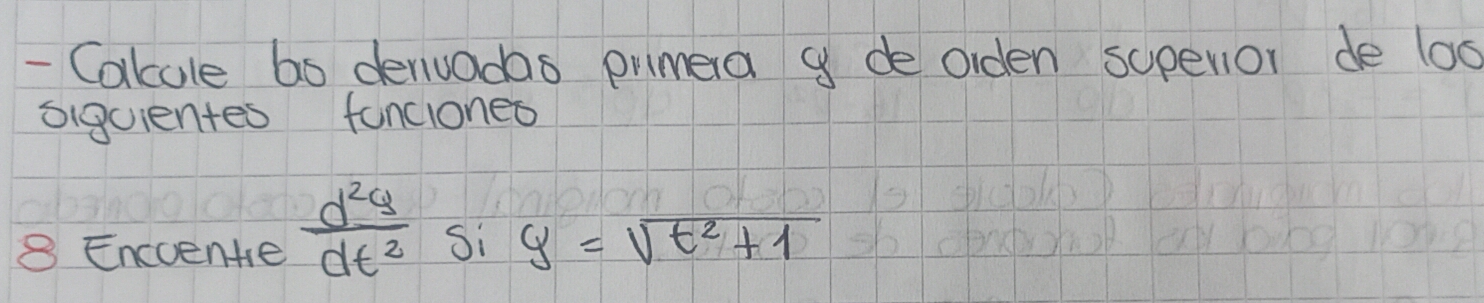 - Calcule las derivadas primera y de orden superior de las
siguientes funciones
8 Encuentre d²y/dt² Si y = √(t² + 1)